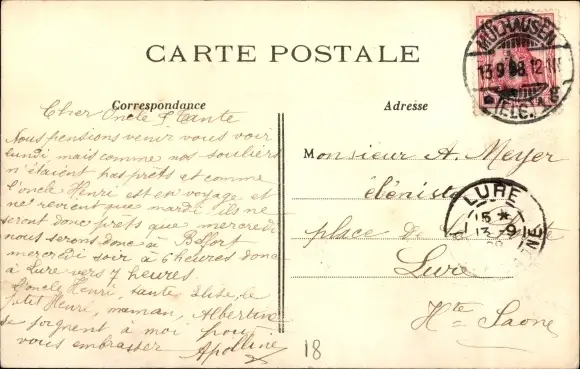 CARTE POSTALE
Correspondance
Adresse
MÜLHAUSEN
13.9.08.12-1N
(ELS.)
Cher Oncle & Tante
Nous pensions venir vous voir
lundi mais comme nos souliers
n'étaient pas prêts et comme
l'oncle Henri est en voyage et
ne revient que mardi, ils ne
seront donc prêts que mercredi
nous serons donc à Belfort
mercredi soir à 6 heures donc
à Lure vers 7 heures.
L'oncle Henri, tante Elise, le
petit Henri, maman, Albertine
se joignent à moi pour
vous embrasser Apolline
Monsieur A. Meyer
ébéniste
place de la
Lure
Hte Saone
LURE
15 *
13-9
18